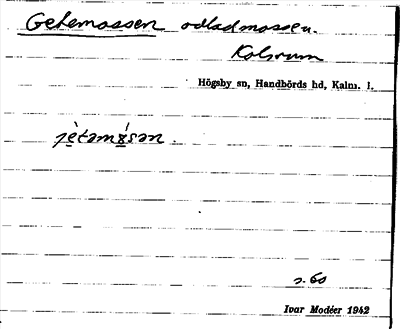 Getemossen odladmossen.
Kolsrum
Högsby sn, Handbörds hd, Kalm. l.
jètəmɷ́sən.
s. 60
Ivar Modéer 1942